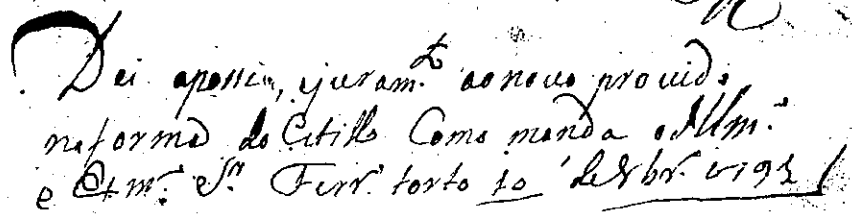 Dei aposse, ejuram.to aonovo provido
naforma do Estillo Como manda o Illm.o
e Exm.o S.r Ferr.o torto 10 de 8br.o 1793